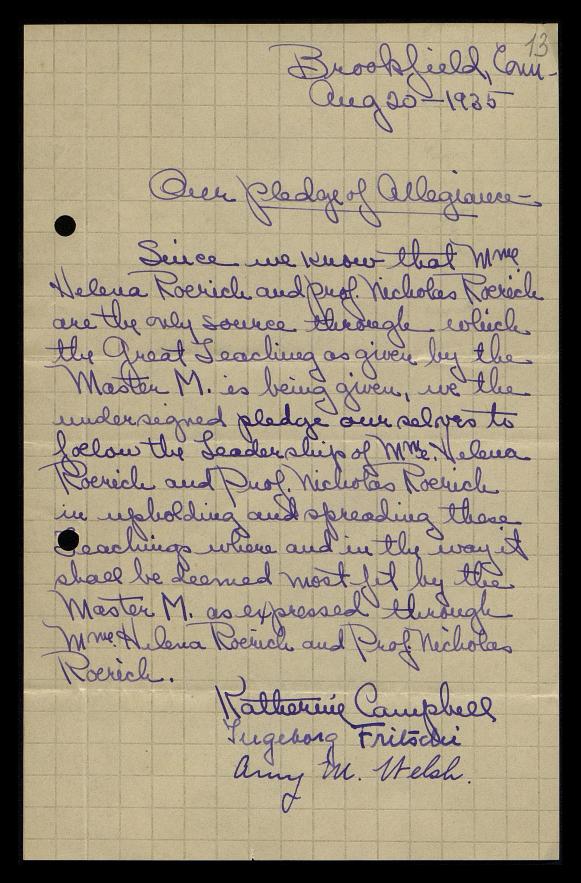 13
Brookfield, Conn-
Aug 20-1935
Our pledge of Allegiance-
Since we know that Mme.
Helena Roerich and prof. Nicholas Roerich
are the only source through which
the Great Teaching as given by the
Master M. is being given, we the
undersigned pledge ourselves to
follow the Leadership of Mme. Helena
Roerich and Prof. Nicholas Roerich
in upholding and spreading these
Teachings where and in the way it
shall be deemed most fit by the
Master M. as expressed through
Mme. Helena Roerich and Prof. Nicholas
Roerich.
Katherine Campbell
Ingeborg Fritzschi
Amy M. Welsh.